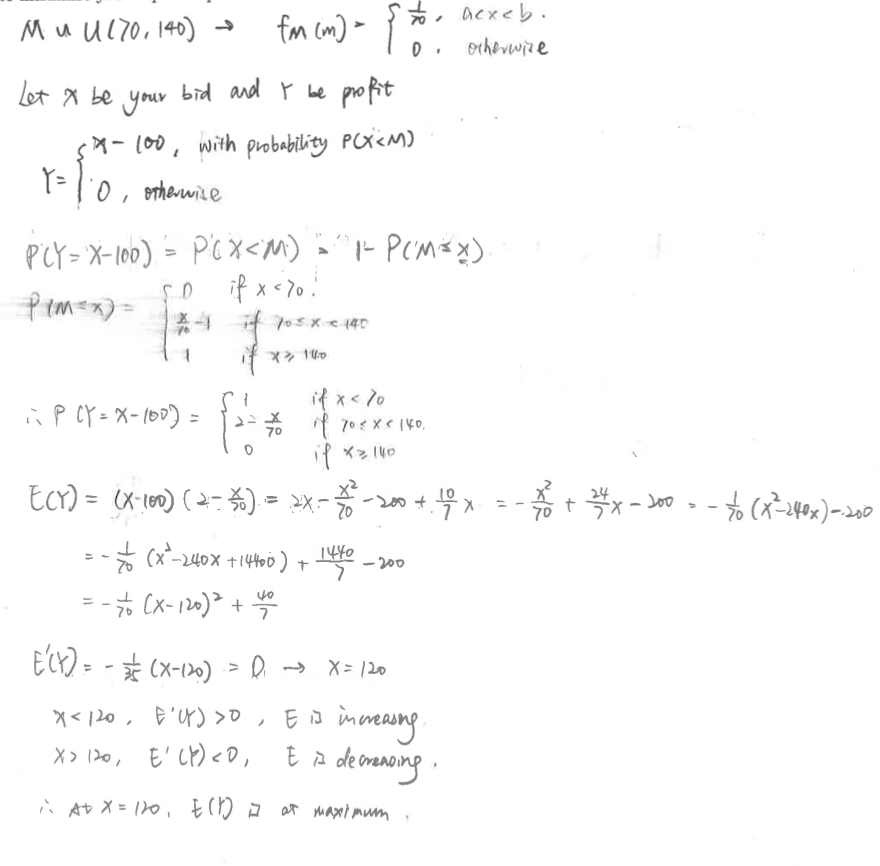 M ~ U(70, 140) → fm(m) = { 1/70, a<x<b.
0, otherwise
Let x be your bid and Y be profit
Y = { x - 100, with probability P(X<M)
0, otherwise
P(Y=X-100) = P(X<M) = 1- P(M≤x)
P(M≤x) = { 0 if x<70.
x/70 - 1 if 70≤x<140
1 if x≥140
∴ P(Y=X-100) = { 1 if x<70
2 - x/70 if 70≤x<140.
0 if x≥140
E(Y) = (x-100)(2-x/70) = 2x - x²/70 - 200 + 10/7 x = - x²/70 + 24/7 x - 200 = - 1/70 (x²-240x) - 200
= - 1/70 (x²-240x+14400) + 1440/7 - 200
= - 1/70 (x-120)² + 40/7
E'(Y) = - 1/35 (x-120) = 0 → x = 120
x<120, E'(Y)>0, E is increasing
x>120, E'(Y)<0, E is decreasing.
∴ At x=120, E(Y) is at maximum.